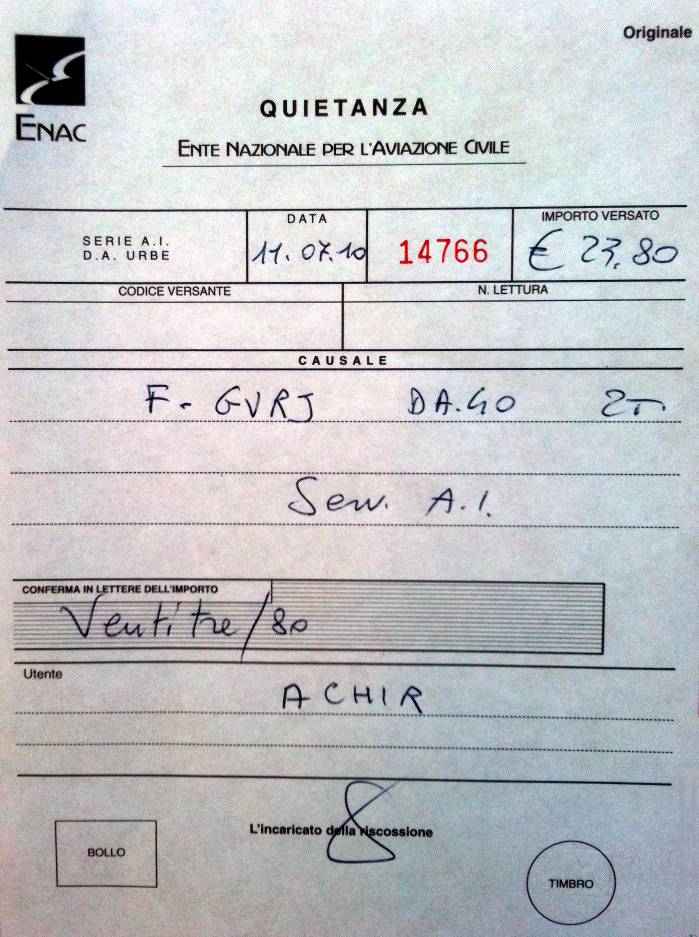 Originale
ENAC
QUIETANZA
ENTE NAZIONALE PER L'AVIAZIONE CIVILE
SERIE A.I.
D.A. URBE
DATA
11.07.10
14766
IMPORTO VERSATO
€ 23,80
CODICE VERSANTE
N. LETTURA
CAUSALE
F - GVRJ DA.40 2T
Serv. A.I.
CONFERMA IN LETTERE DELL'IMPORTO
Ventitre/80
Utente
ACHIR
L'incaricato della riscossione
BOLLO
TIMBRO